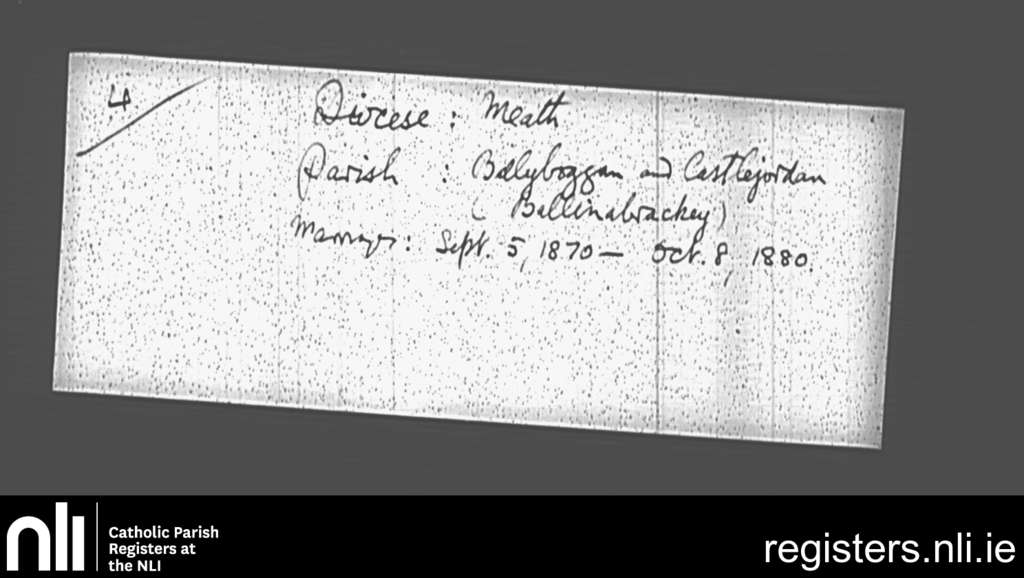 4
Diocese : Meath
Parish : Ballyboggan and Castlejordan
( Ballinabrackey )
Marriages : Sept. 5, 1870 — Oct. 8, 1880.
nli
Catholic Parish
Registers at
the NLI
registers.nli.ie